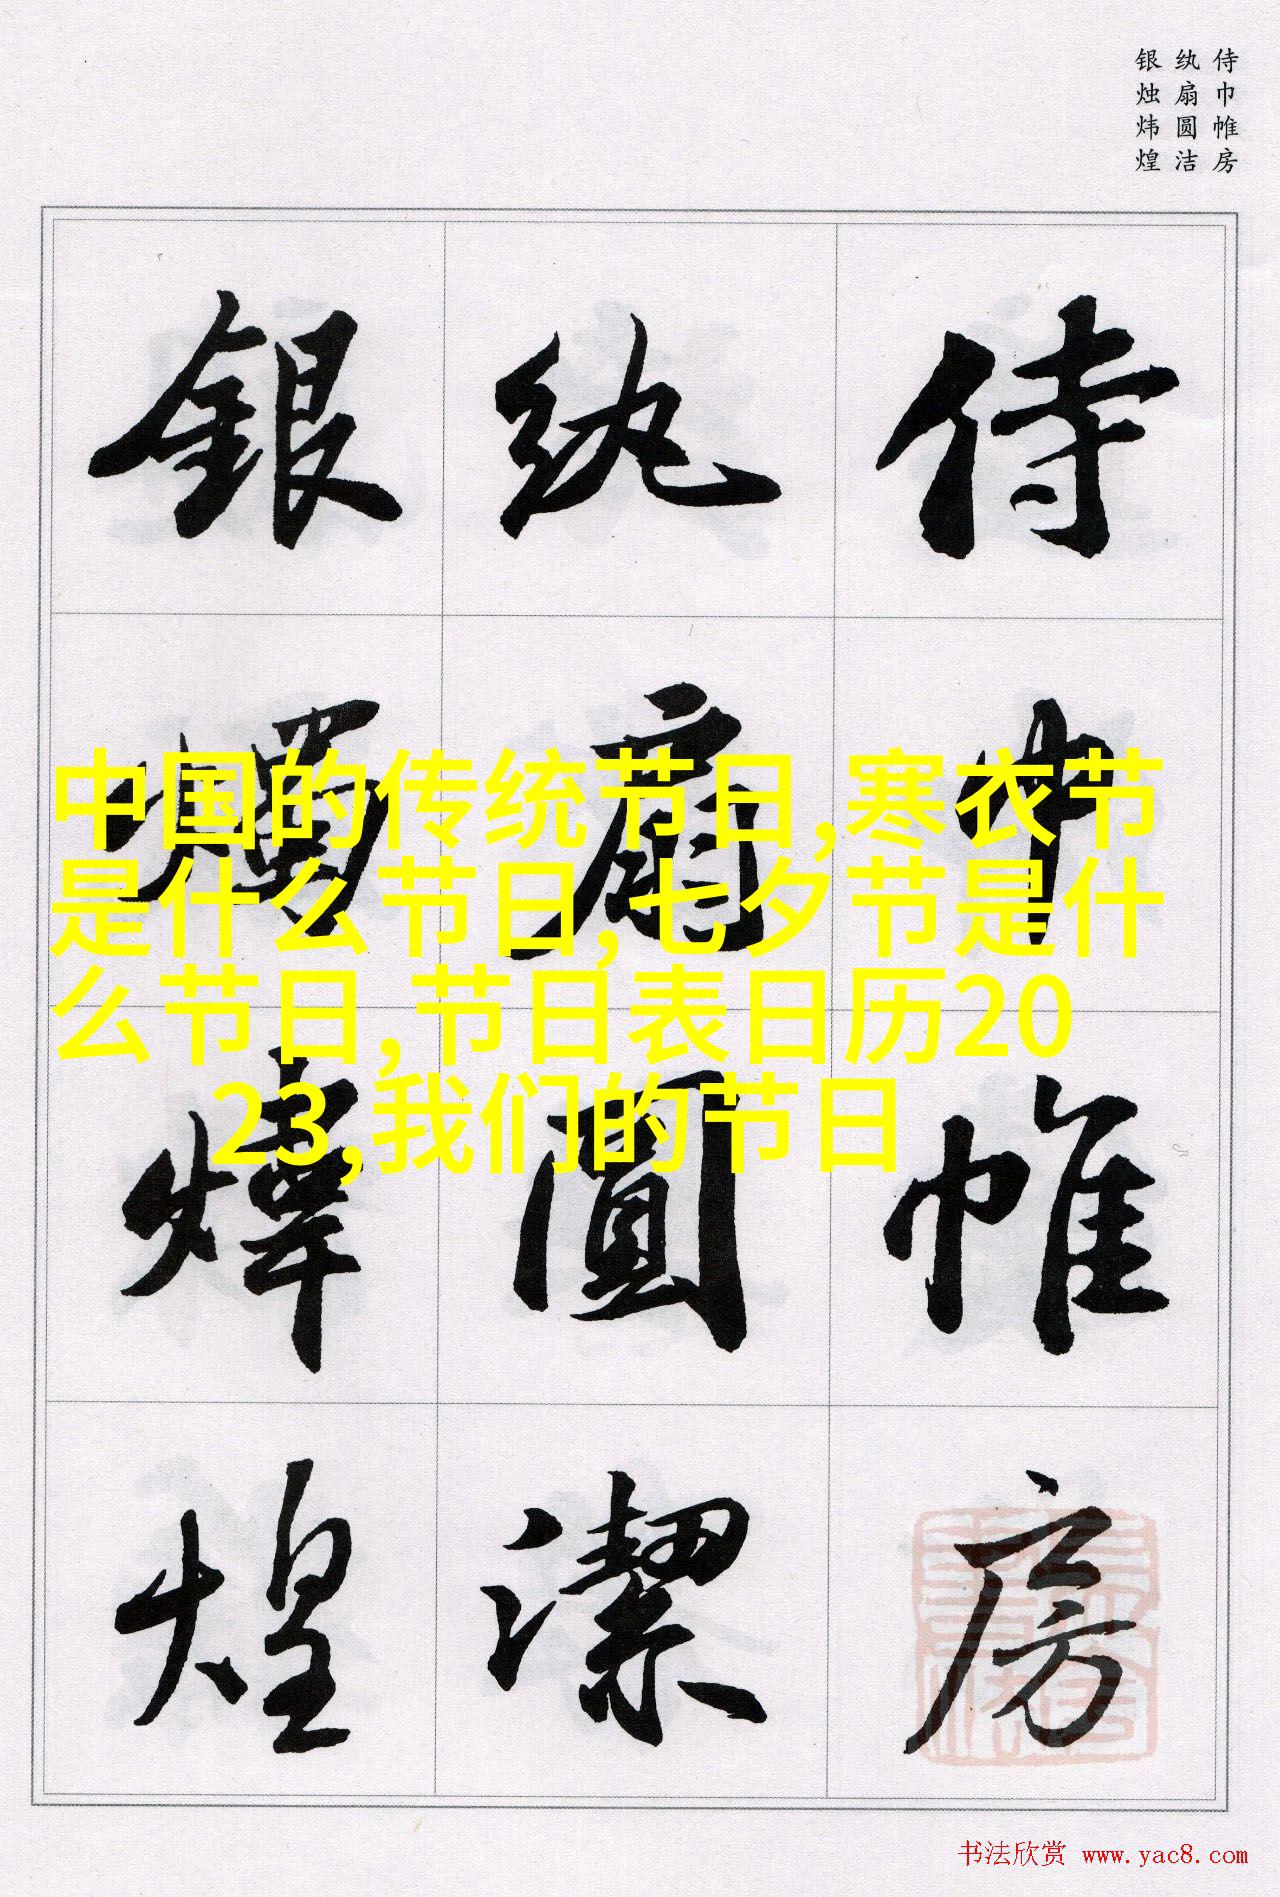 侍巾帷房
纨扇圆洁
银烛炜煌
侍巾帷房
纨扇圓潔
銀燭煒煌
中国的传统节日,寒衣节
是什么节日,七夕节是什
么节日,节日表日历20
23,我们的节日
书法欣赏 www.yac8.com